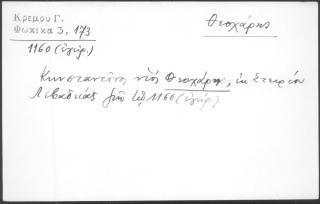 Κρέμου Γ.
Φωκικά 3, 173
1160 (ἐγχειρ.)
Θεοχάρης
Κωνσταντῖνος υἱὸς Θεοχάρη, ἐκ Στειρίου
Λεβαδείας ζῇ τῷ 1160 (ἐγχειρ.)